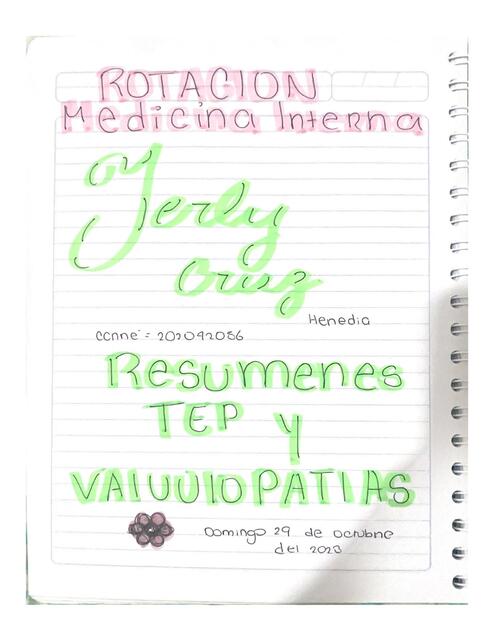 ROTACION
Medicina Interna
Yerly
Cruz
Heredia
carné: 202042086
Resumenes
TEP y
VAlVUlOPATIAS
Domingo 29 de octubre
del 2023